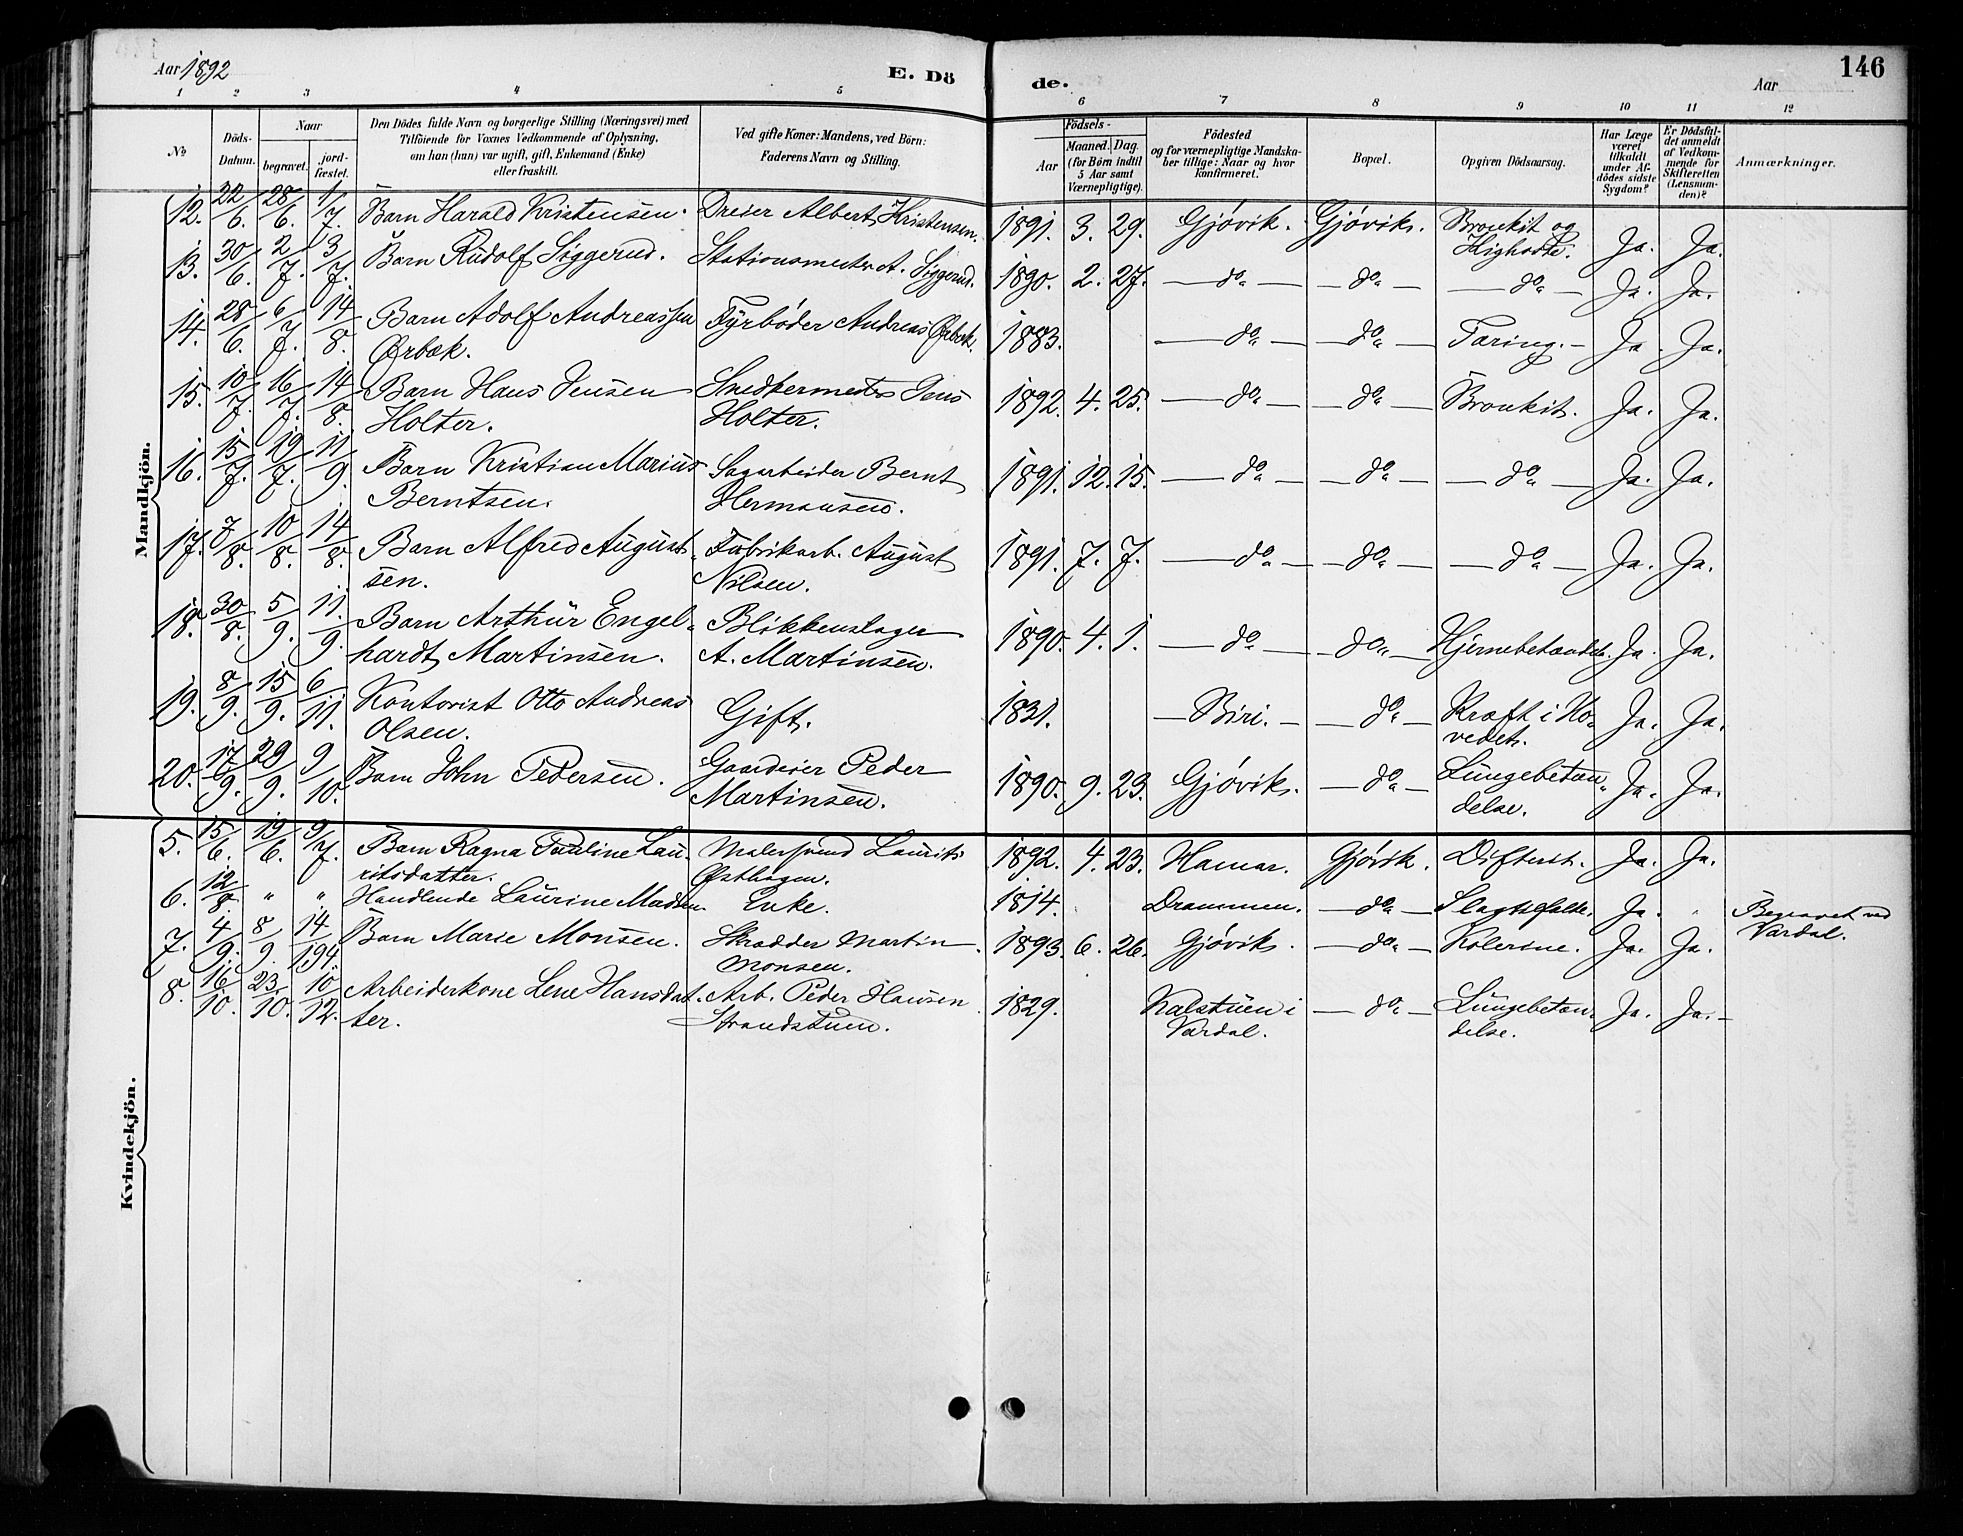 Aar 1892 E. Dö de. Aar 146
1 2 3 4 5 6 7 8 9 10 11 12
№ Döds-Datum. Naar begravet. jord-fæstet. Den Dödes fulde Navn og borgerlige Stilling (Næringsvei) med Tilföiende for Voxnes Vedkommende af Oplysning, om han (hun) var ugift, gift, Enkemand (Enke) eller fraskilt. Ved gifte Koner: Mandens, ved Börn: Faderens Navn og Stilling. Födsels- Aar Maaned. Dag. (for Börn indtil 5 Aar samt Værnepligtige). Födested og for værnepligtige Mandskaber tillige: Naar og hvor konfirmeret. Bopæl. Opgiven Dödsaarsag. Har Læge været tilkaldt under Afdödes sidste Sygdom? Er Dödsfaldet anmeldt af Vedkommende for Skifteretten (Lensmanden)? Anmærkninger.
Mandkjön.
12. 22/6. 28/6. 1/7. Barn Harald Kristensen. Dreier Albert Kristensen. 1891. 3. 29. Gjövik. Gjövik. Bronkit og Kighoste. Ja. Ja.
13. 30/6. 2/7. 3/7. Barn Rudolf Siggerud. Stationsmester A. Siggerud. 1890. 2. 27. — do — — do — — do — Ja. Ja.
14. 28/6. 6/7. 14/8. Barn Adolf Andreassen Ørbæk. Fyrböder Andreas Ørbæk. 1883. — do — — do — Taring. Ja. Ja.
15. 10/7. 16/7. 14/8. Barn Hans Jensen Holter. Snedkermester Jens Holter. 1892. 4. 25. — do — — do — Bronkit. Ja. Ja.
16. 15/7. 19/7. 11/9. Barn Kristian Marius Berntsen. Sagarbeider Bernt Hermansen. 1891. 12. 15. — do — — do — — do — Ja. Ja.
17. 7/8. 10/8. 14/8. Barn Alfred August-sen. Fabrikarb. August Nilsen. 1891. 7. 7. — do — — do — — do — Ja. Ja.
18. 30/8. 5/9. 11/9. Barn Arthur Engel-hardt Martinsen. Blikkenslager A. Martinsen. 1890. 4. 1. — do — — do — Hjernebetændels. Ja. Ja.
19. 8/9. 15/9. 6/11. Kontorist Otto Andreas Olsen. Gift. 1831. — Biri. — — do — Kræft i Ho-vedet. Ja. Ja.
20. 17/9. 29/9. 9/10. Barn John Pedersen. Gaardeier Peder Martinsen. 1890. 9. 23. Gjövik. — do — Lungebetæn-delse. Ja. Ja.
Kvindekjön.
5. 15/6. 19/6. 9/7. Barn Ragna Pauline Lau-ritsdatter. Malersvend Laurits Østhagen. 1892. 4. 23. Hamar. Gjövik. Difterit. Ja. Ja.
6. 12/8. " " Handlende Laurine Madsen. Enke. 1814. Drammen. — do — Slagtilfælde. Ja. " Begravet ved Vardal.
7. 4/9. 8/9. 14/194. Barn Marie Monsen. Skrædder Martin Monsen. 1893. 6. 26. Gjövik. — do — Kolerine. Ja. Ja.
8. 16/10. 23/10. 10/12. Arbeiderkone Lene Hansdat-ter. Arb. Peder Hansen Strandstuen. 1829. Kalstuen i Vardal. — do — Lungebetæn-delse. Ja. Ja. —